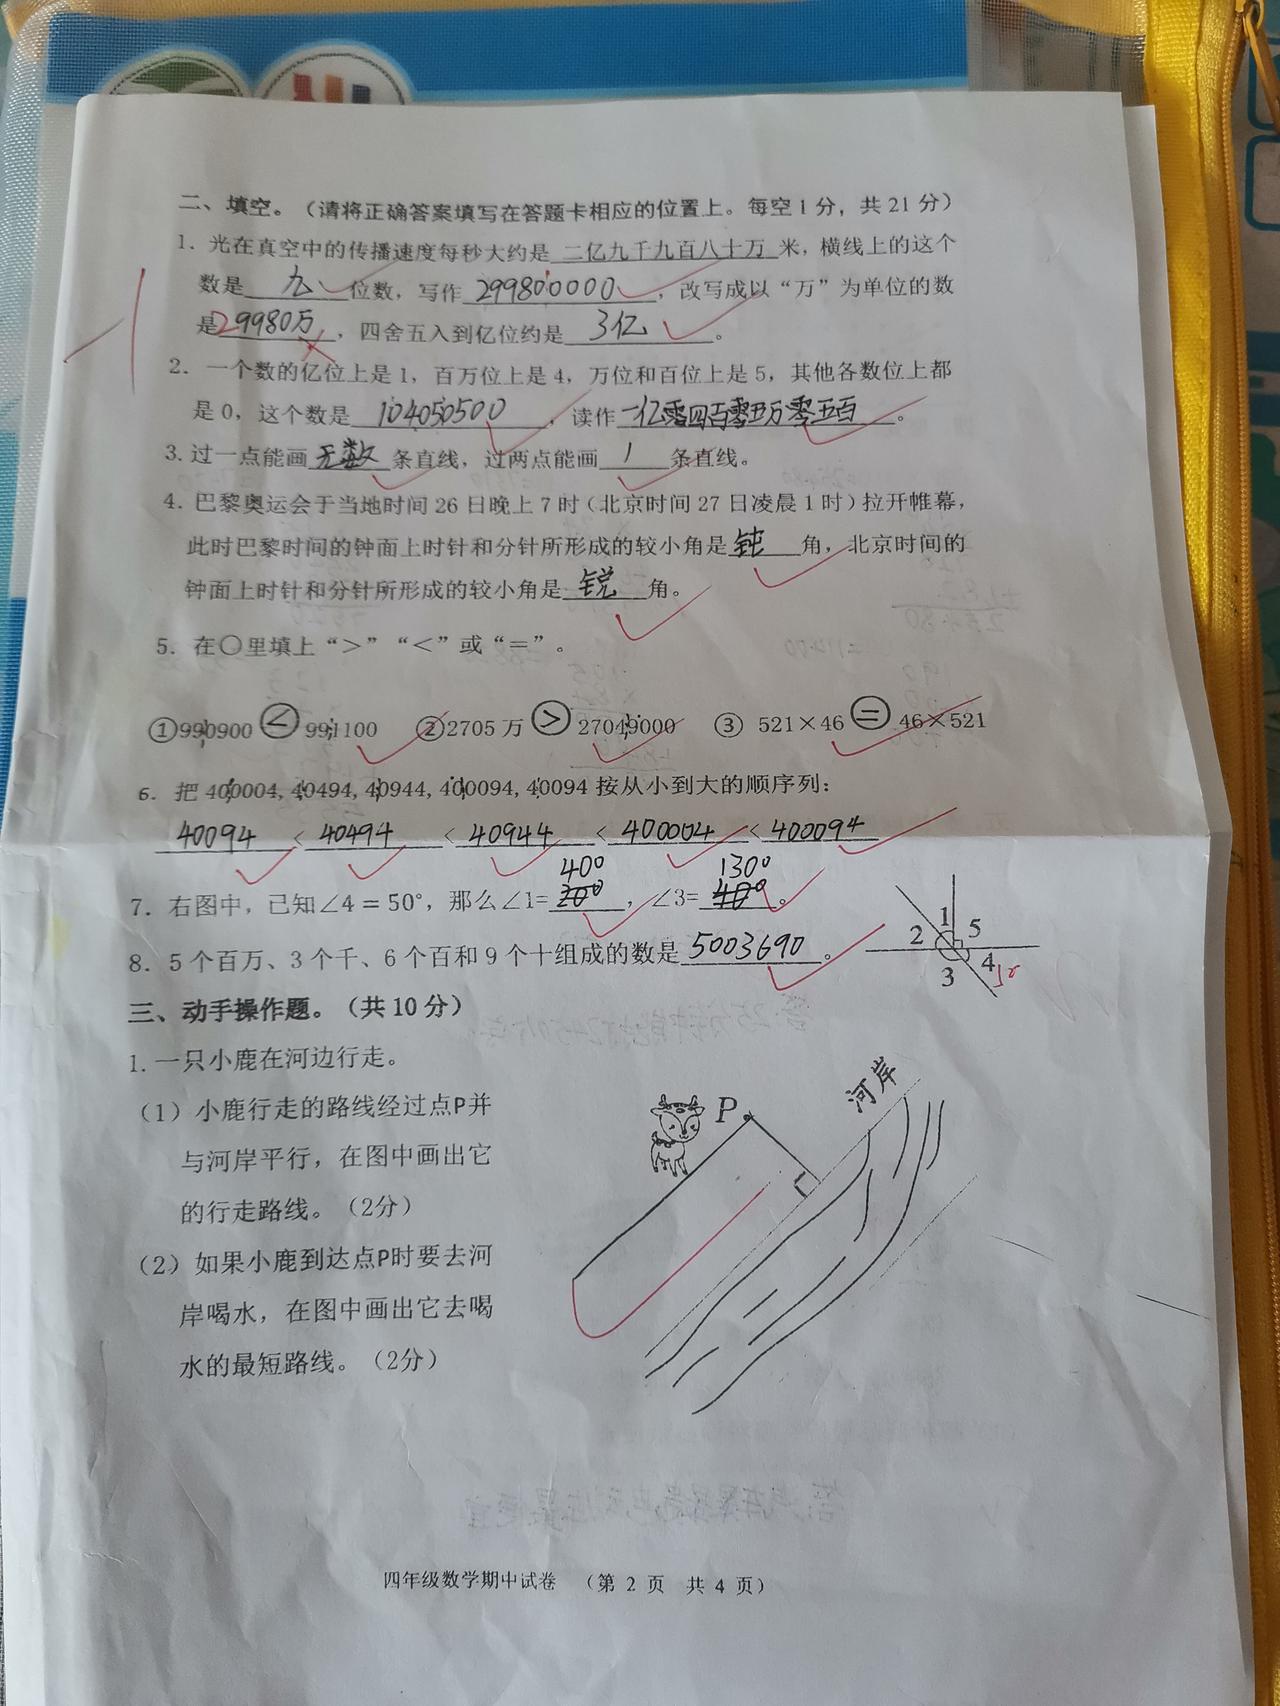 二、填空。（请将正确答案填写在答题卡相应的位置上。每空1分，共21分）
1. 光在真空中的传播速度每秒大约是 二亿九千九百八十万 米，横线上的这个
数是 九 位数，写作 299800000 ，改写成以“万”为单位的数
是 29980万 ，四舍五入到亿位约是 3亿 。
2. 一个数的亿位上是1，百万位上是4，万位和百位上是5，其他各数位上都
是0，这个数是 104050500 ，读作 一亿零四百零五万零五百 。
3. 过一点能画 无数 条直线，过两点能画 1 条直线。
4. 巴黎奥运会于当地时间26日晚上7时（北京时间27日凌晨1时）拉开帷幕，
此时巴黎时间的钟面上时针和分针所形成的较小角是 钝 角，北京时间的
钟面上时针和分针所形成的较小角是 锐 角。
5. 在○里填上“>”“<”或“=”。
①990900 < 991100 ②2705万 > 27049000 ③ 521×46 = 46×521
6. 把 400004, 40494, 40944, 400094, 40094 按从小到大的顺序列：
40094 < 40494 < 40944 < 400004 < 400094
40° 130°
7. 右图中，已知∠4＝50°，那么∠1= 20° ，∠3= 40° 。
1 5
2
3 4
8. 5个百万、3个千、6个百和9个十组成的数是 5003690 。
三、动手操作题。（共10分）
1. 一只小鹿在河边行走。
（1）小鹿行走的路线经过点P并
与河岸平行，在图中画出它
的行走路线。（2分）
（2）如果小鹿到达点P时要去河
岸喝水，在图中画出它去喝
水的最短路线。（2分）
P
河岸
四年级数学期中试卷 （第 2 页 共 4 页）